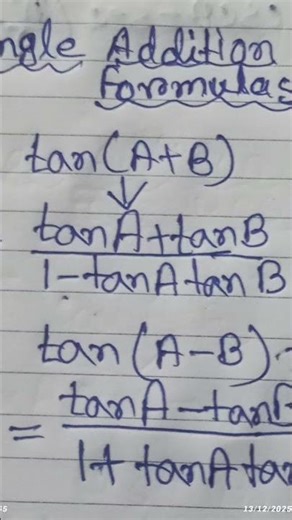 ngle Addition
Formulas
tan(A+B)
↓
tanA+tanB
1-tanA tanB
tan(A-B)
tanA-tanB
=
1+ tanA tan
13/12/2025